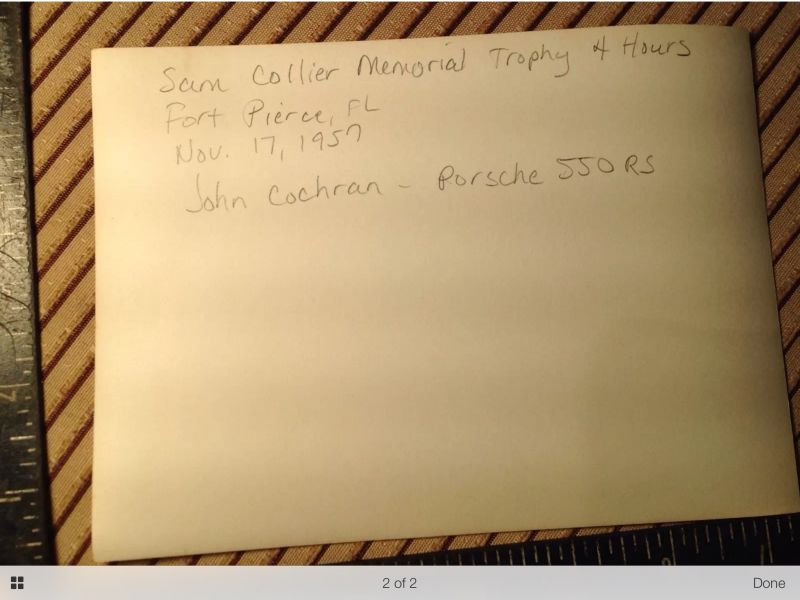 Sam Collier Memorial Trophy 4 Hours
Fort Pierce, FL
Nov. 17, 1957
John Cochran - Porsche 550 RS
2 of 2
Done